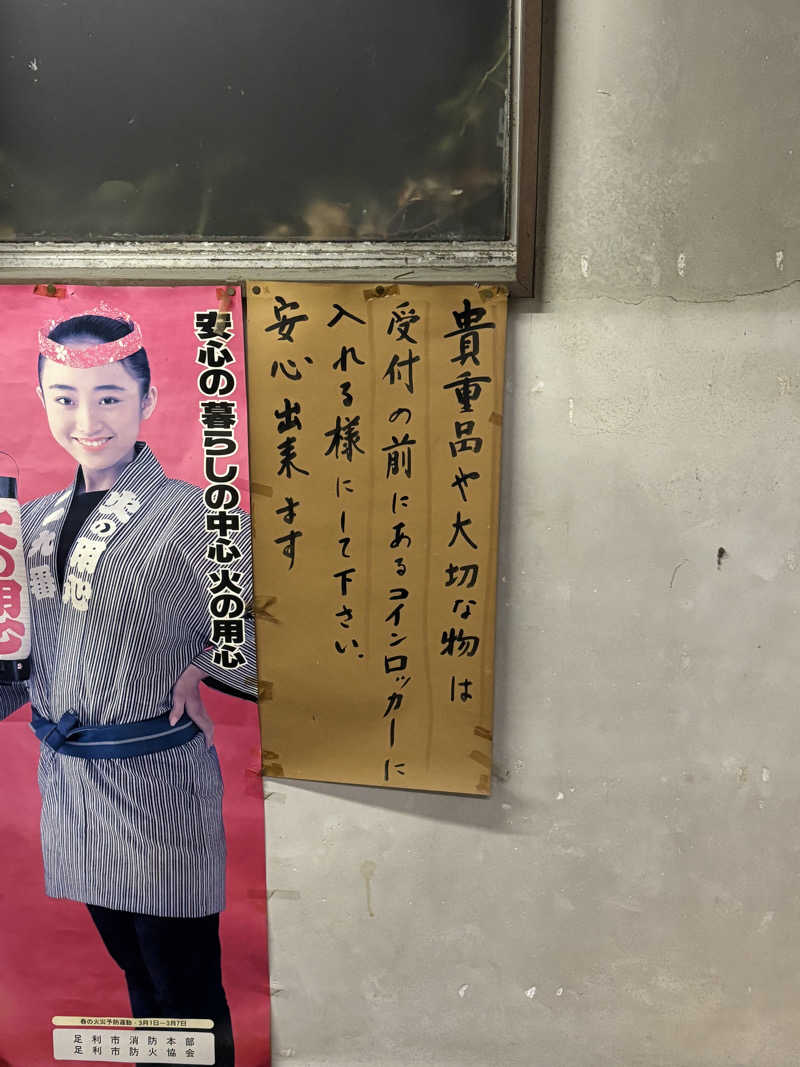 貴重品や大切な物は
受付の前にあるコインロッカーに
入れる様にして下さい.
安心出来ます
安心の暮らしの中心 火の用心
火の用心
一九番
火の用心
春の火災予防運動・3月1日—3月7日
足利市消防本部
足利市防火協会